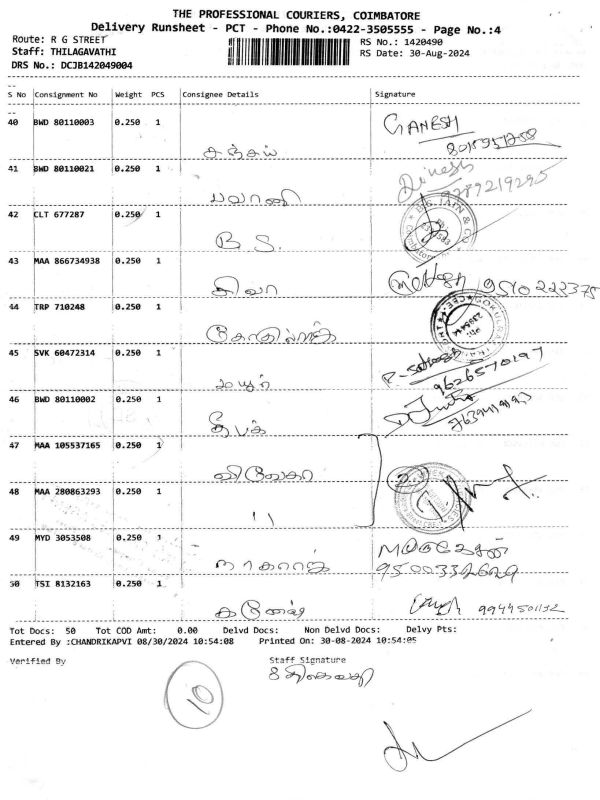 THE PROFESSIONAL COURIERS, COIMBATORE
Delivery Runsheet - PCT - Phone No.:0422-3505555 - Page No.:4
Route: R G STREET
Staff: THILAGAVATHI
DRS No.: DCJB142049004
RS No.: 1420490
RS Date: 30-Aug-2024
S No Consignment No Weight PCS Consignee Details Signature
40 BWD 80110003 0.250 1 GANESH
சஞ்சய்
41 BWD 80110021 0.250 1 Dinesh
பவானி 9789219295
42 CLT 677287 0.250 1
B.S.
43 MAA 866734938 0.250 1
சிவா
44 TRP 710248 0.250 1
45 SVK 60472314 0.250 1
மயூர் 9626570197
46 BWD 80110002 0.250 1
தீபக்
47 MAA 105537165 0.250 1
48 MAA 280863293 0.250 1
"
49 MYD 3053508 0.250 1
நாகராஜ்
50 TSI 8132163 0.250 1
கணேஷ் 9944501132
Tot Docs: 50 Tot COD Amt: 0.00 Delvd Docs: Non Delvd Docs: Delvy Pts:
Entered By :CHANDRIKAPVI 08/30/2024 10:54:08 Printed On: 30-08-2024 10:54:05
Verified By Staff Signature
10